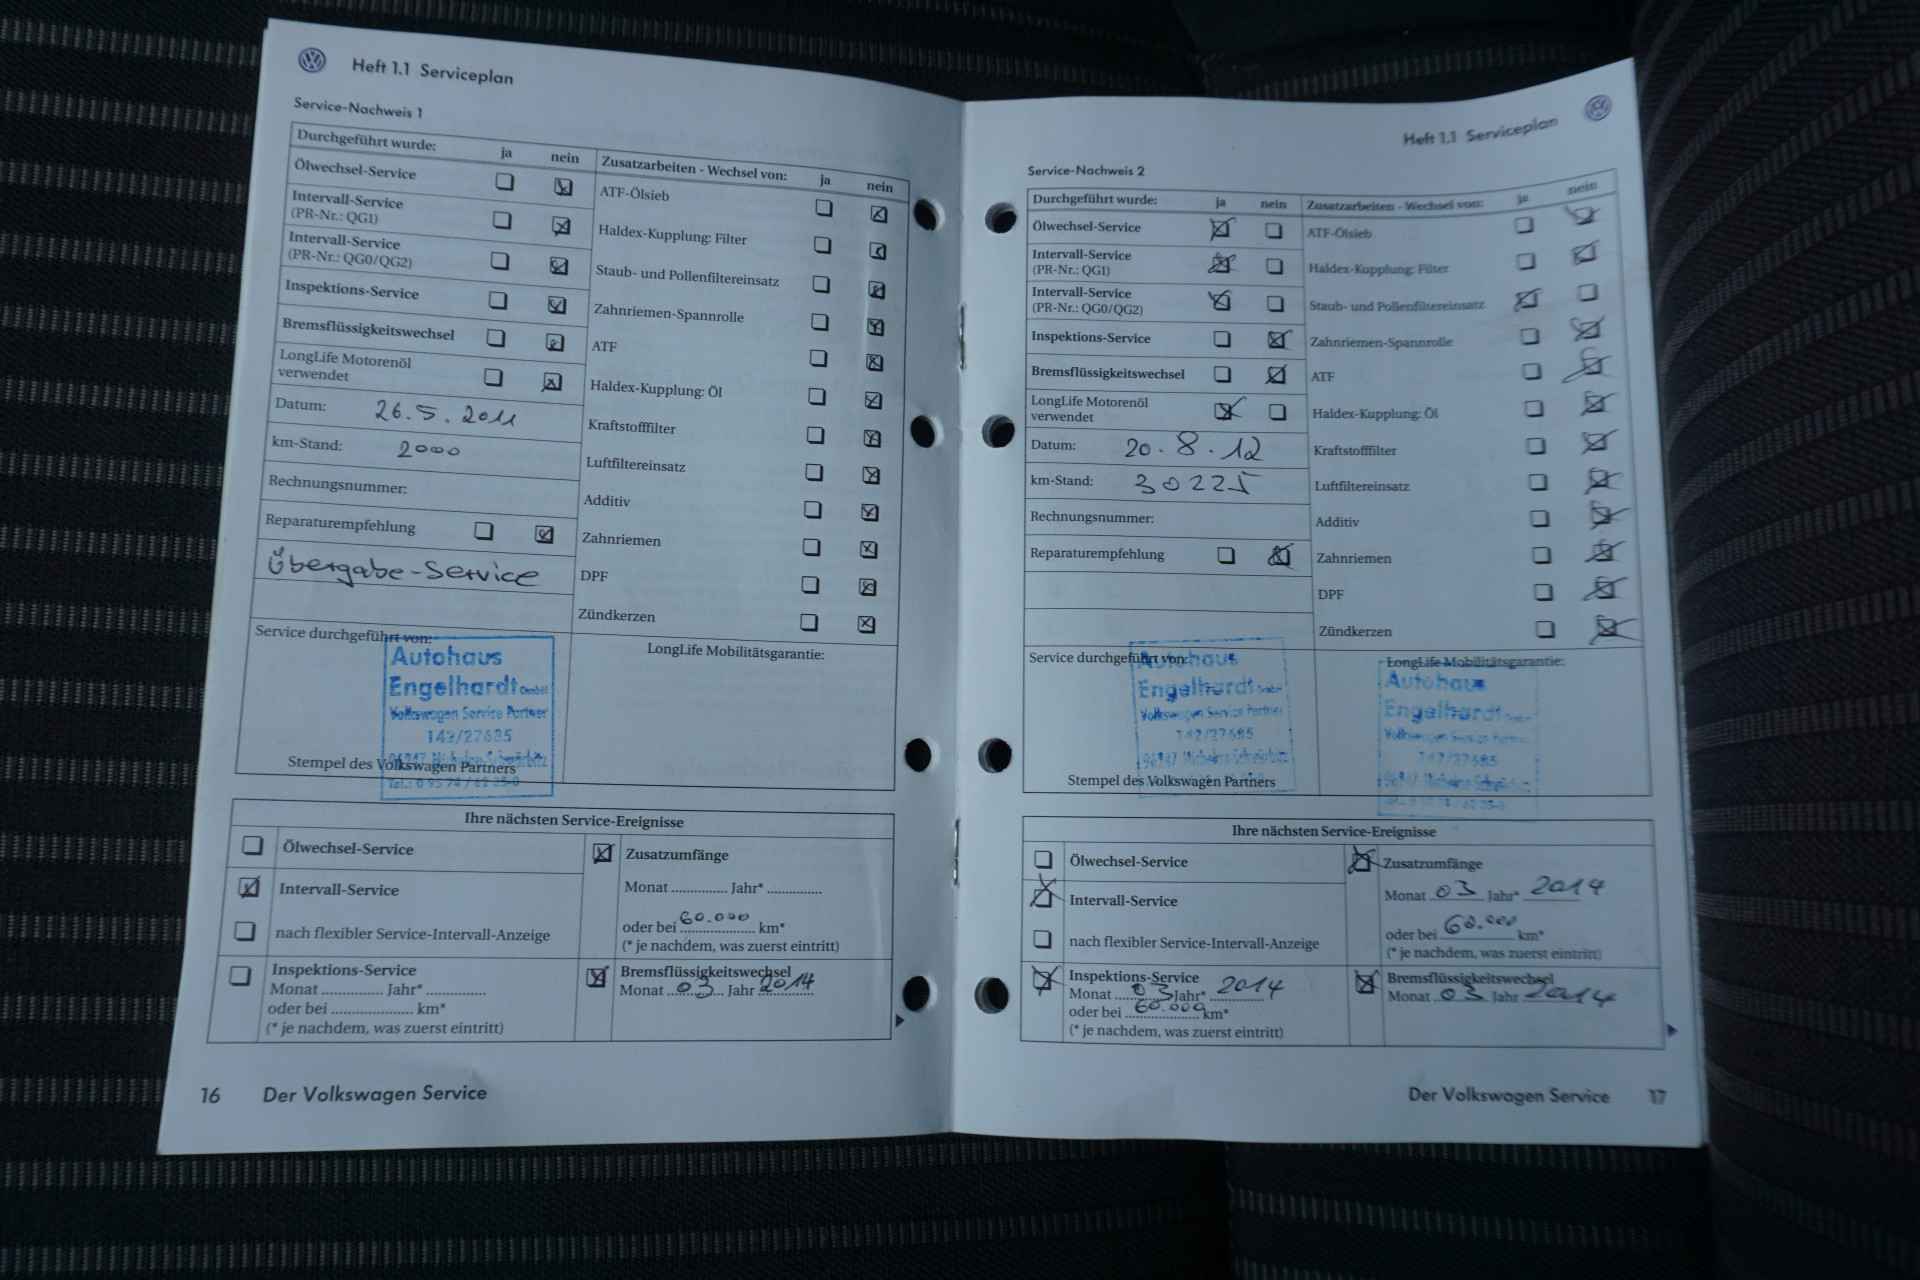 Heft 1.1 Serviceplan
Service-Nachweis 1
Durchgeführt wurde: ja nein
Ölwechsel-Service
Intervall-Service
(PR-Nr.: QG1)
Intervall-Service
(PR-Nr.: QG0/QG2)
Inspektions-Service
Bremsflüssigkeitswechsel
LongLife Motorenöl
verwendet
Datum: 26.5.2011
km-Stand: 2000
Rechnungsnummer:
Reparaturempfehlung
Übergabe-Service
Zusatzarbeiten - Wechsel von: ja nein
ATF-Ölsieb
Haldex-Kupplung: Filter
Staub- und Pollenfiltereinsatz
Zahnriemen-Spannrolle
ATF
Haldex-Kupplung: Öl
Kraftstofffilter
Luftfiltereinsatz
Additiv
Zahnriemen
DPF
Zündkerzen
Service durchgeführt von:
Autohaus
Engelhardt GmbH
Volkswagen Service Partner
142/27685
Stempel des Volkswagen Partners
LongLife Mobilitätsgarantie:
Ihre nächsten Service-Ereignisse
Ölwechsel-Service
Intervall-Service
nach flexibler Service-Intervall-Anzeige
Inspektions-Service
Monat .............. Jahr* ..............
oder bei .................... km*
(* je nachdem, was zuerst eintritt)
Zusatzumfänge
Monat .............. Jahr* ..............
oder bei 60.000 km*
(* je nachdem, was zuerst eintritt)
Bremsflüssigkeitswechsel
Monat 03 Jahr 2014
16 Der Volkswagen Service
Heft 1.1 Serviceplan
Service-Nachweis 2
Durchgeführt wurde: ja nein
Ölwechsel-Service
Intervall-Service
(PR-Nr.: QG1)
Intervall-Service
(PR-Nr.: QG0/QG2)
Inspektions-Service
Bremsflüssigkeitswechsel
LongLife Motorenöl
verwendet
Datum: 20.8.12
km-Stand: 30225
Rechnungsnummer:
Reparaturempfehlung
Zusatzarbeiten - Wechsel von: ja nein
ATF-Ölsieb
Haldex-Kupplung: Filter
Staub- und Pollenfiltereinsatz
Zahnriemen-Spannrolle
ATF
Haldex-Kupplung: Öl
Kraftstofffilter
Luftfiltereinsatz
Additiv
Zahnriemen
DPF
Zündkerzen
Service durchgeführt von:
Autohaus
Engelhardt GmbH
Volkswagen Service Partner
142/27685
Stempel des Volkswagen Partners
LongLife Mobilitätsgarantie:
Autohaus
Engelhardt
Volkswagen Service Partner
142/27685
Ihre nächsten Service-Ereignisse
Ölwechsel-Service
Intervall-Service
nach flexibler Service-Intervall-Anzeige
Inspektions-Service
Monat 03 Jahr* 2014
oder bei 60.000 km*
(* je nachdem, was zuerst eintritt)
Zusatzumfänge
Monat 03 Jahr* 2014
oder bei 60.000 km*
(* je nachdem, was zuerst eintritt)
Bremsflüssigkeitswechsel
Monat 03 Jahr 2014
Der Volkswagen Service 17